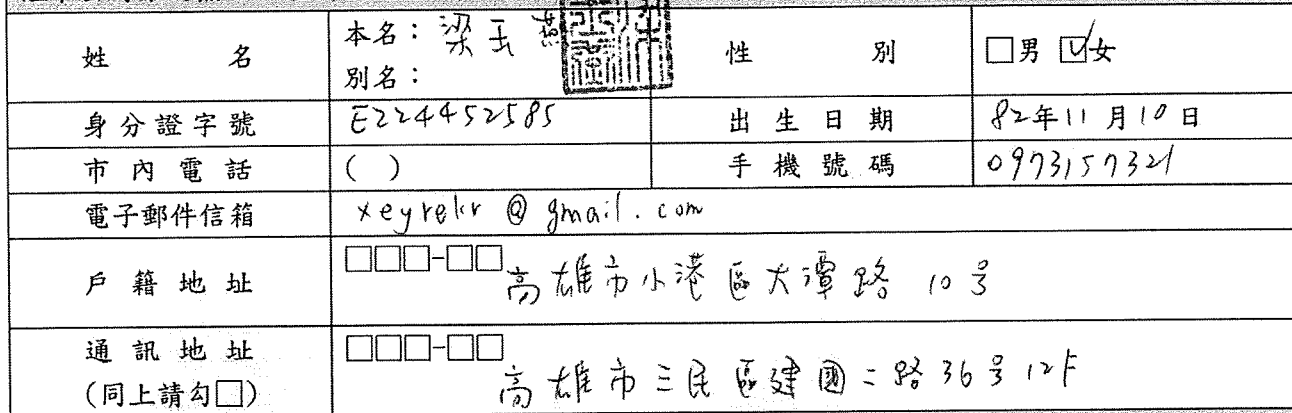 姓 名 本名：梁玉燕 性 別 □男 ☑女
別名：
身分證字號 E224452585 出生日期 82年11月10日
市內電話 ( ) 手機號碼 0973157321
電子郵件信箱 xeyrekr@gmail.com
戶籍地址 □□□-□□ 高雄市小港區大潭路 10号
通訊地址 □□□-□□
(同上請勾□) 高雄市三民區建國二路36号12F